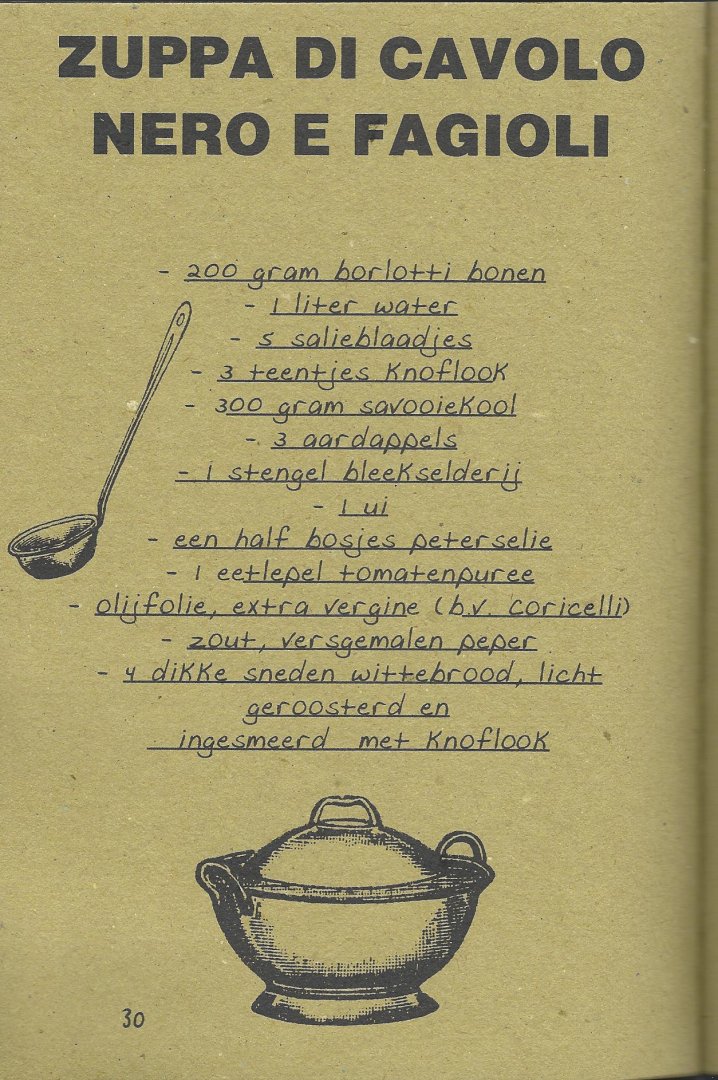 ZUPPA DI CAVOLO
NERO E FAGIOLI
- 200 gram borlotti bonen
- 1 liter water
- 5 salieblaadjes
- 3 teentjes knoflook
- 300 gram savooiekool
- 3 aardappels
- 1 stengel bleekselderij
- 1 ui
- een half bosjes peterselie
- 1 eetlepel tomatenpuree
- olijfolie, extra vergine (b.v. coricelli)
- zout, versgemalen peper
- 4 dikke sneden wittebrood, licht
geroosterd en
ingesmeerd met knoflook
30